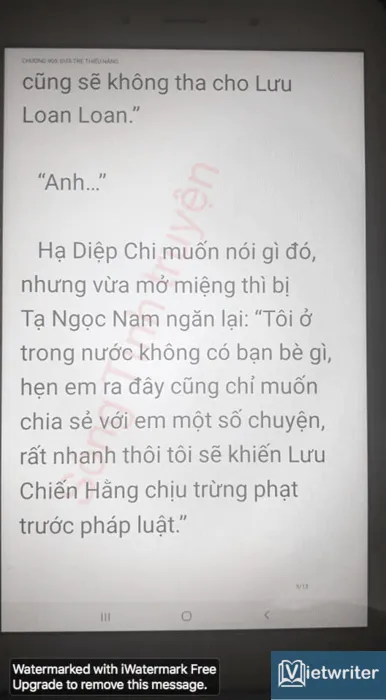 cũng sẽ không tha cho Lưu
Loan Loan.”
“Anh...”
Hạ Diệp Chi muốn nói gì đó,
nhưng vừa mở miệng thì bị
Tạ Ngọc Nam ngăn lại: “Tôi ở
trong nước không có bạn bè gì,
hẹn em ra đây cũng chỉ muốn
chia sẻ với em một số chuyện,
rất nhanh thôi tôi sẽ khiến Lưu
Chiến Hằng chịu trừng phạt
trước pháp luật.”
5/13
Watermarked with iWatermark Free
Upgrade to remove this message.
Vietwriter